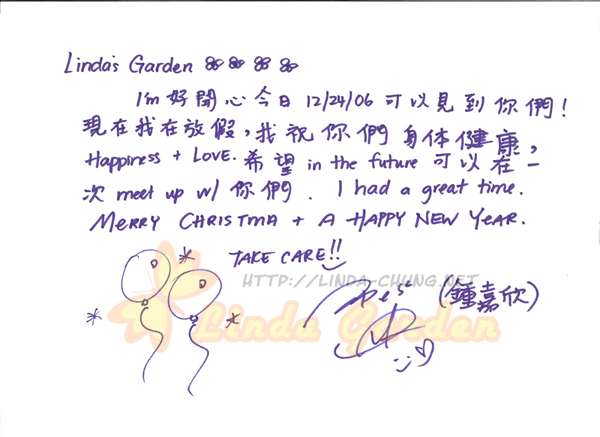 Linda's Garden
I'm 好開心今日 12/24/06 可以見到你們!
現在我在放假,我祝你們身体健康,
Happiness + LOVE. 希望 in the future 可以在一
次 meet up w/ 你們. I had a great time.
MERRY CHRISTMA + A HAPPY NEW YEAR.
TAKE CARE!!
HTTP://LINDA-CHUNG.NET
Best (鍾嘉欣)
Linda Garden